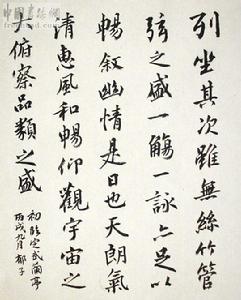 列坐其次雖無絲竹管
弦之盛一觴一詠亦足以
暢叙幽情是日也天朗氣
清惠風和暢仰觀宇宙之
大俯察品類之盛
初臨定武蘭亭
丙戌九月郁子